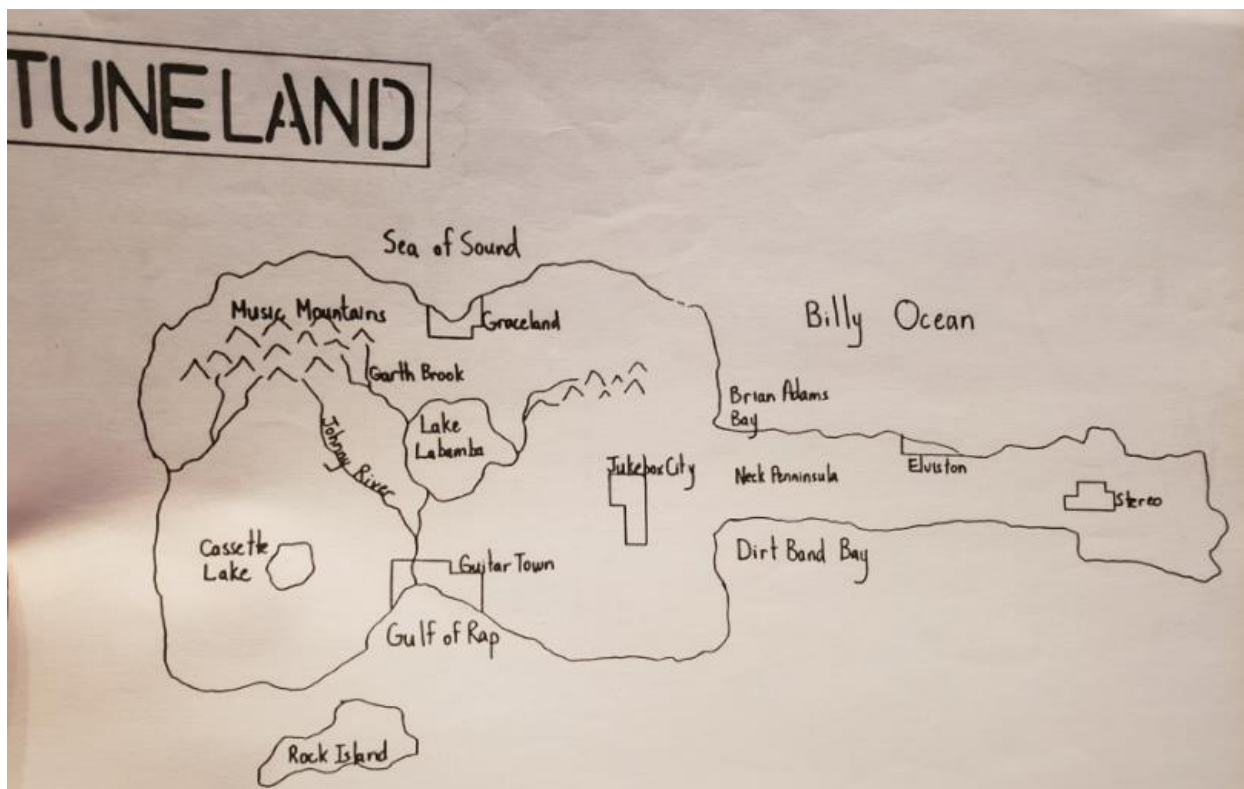 TUNELAND
Sea of Sound
Music Mountains
Graceland
Billy Ocean
Garth Brook
Brian Adams
Bay
Lake
Labamba
Johnny River
Jukebox City
Neck Penninsula
Elviston
Stereo
Cassette
Lake
Guitar Town
Dirt Band Bay
Gulf of Rap
Rock Island